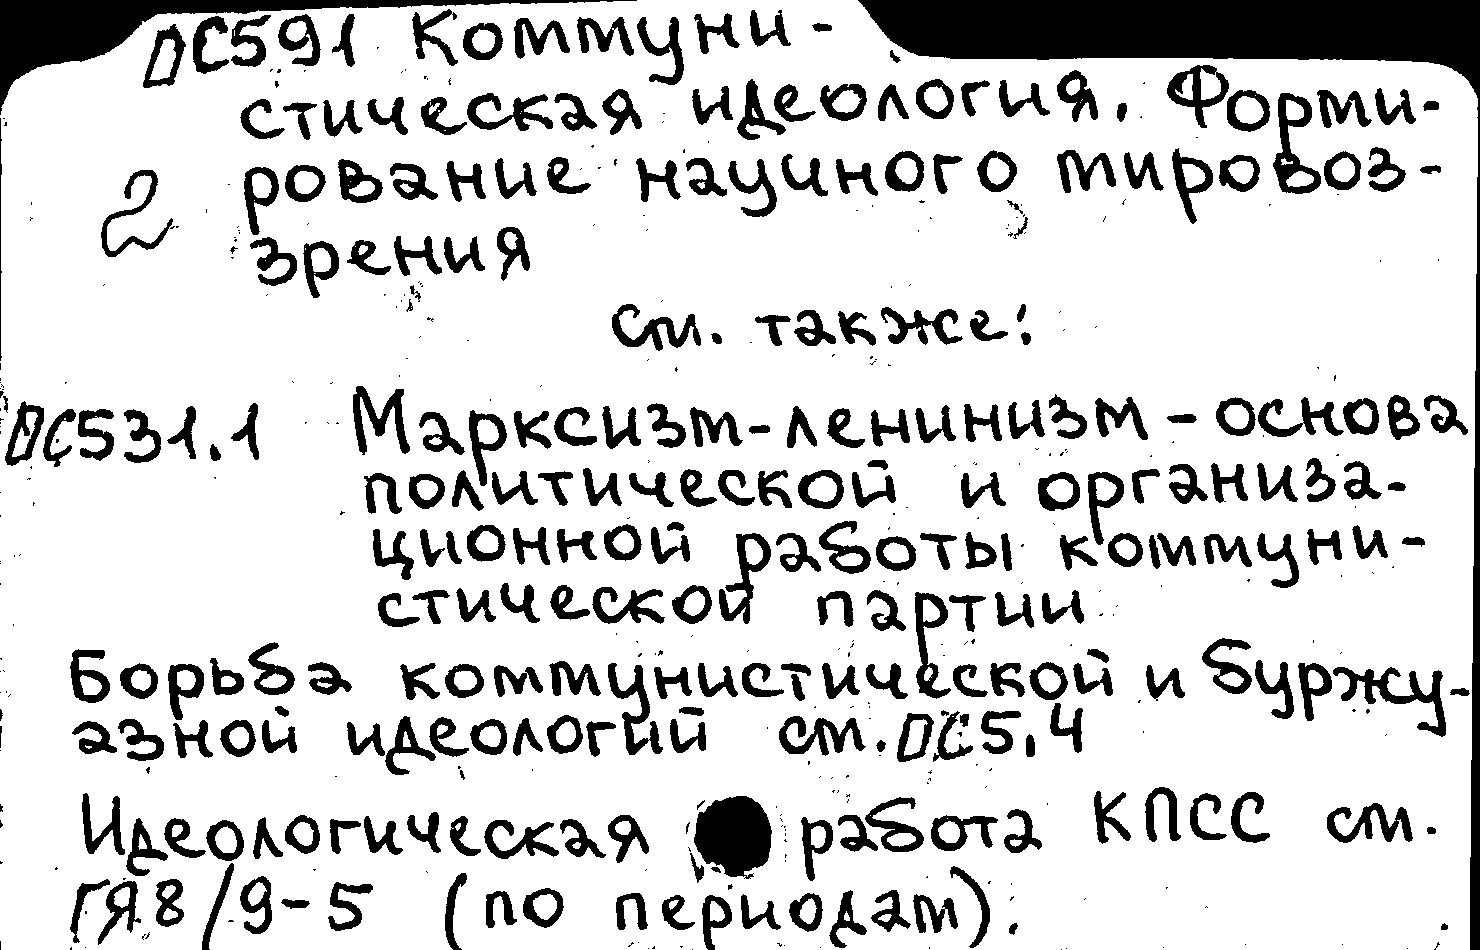 ДС591 Коммуни-
стическая идеология. Форми-
2 рование научного мировоз-
зрения
см. также:
ДС531.1 Марксизм-ленинизм - основа
политической и организа-
ционной работы коммуни-
стической партии
Борьба коммунистической и буржу-
азной идеологий см. ДС5.4
Идеологическая работа КПСС см.
ГЯ8/9-5 (по периодам).